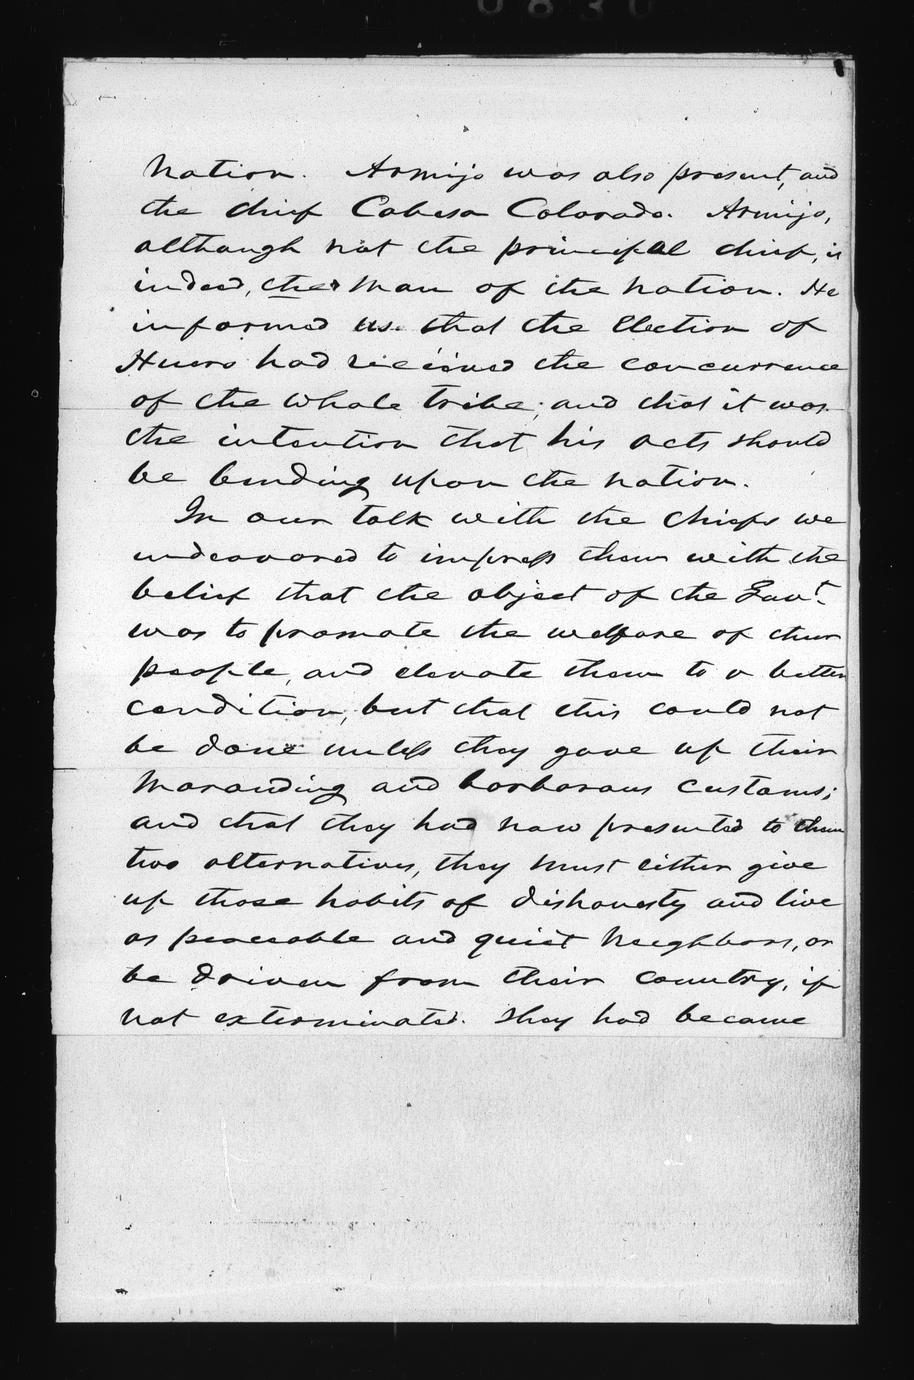 0830
nation. Armijo was also present, and
the chief Cabesa Colorado. Armijo,
although not the principal chief, is
indeed, the man of the nation. He
informed us that the election of
Huero had received the concurrence
of the whole tribe; and that it was
the intention that his acts should
be binding upon the nation.
In our talk with the chiefs we
endeavored to impress them with the
belief that the object of the Govt.
was to promote the welfare of their
people, and elevate them to a better
condition, but that this could not
be done unless they gave up their
marauding and barbarous customs;
and that they had now presented to them
two alternatives, they must either give
up those habits of dishonesty and live
as peaceable and quiet neighbors, or
be driven from their country, if
not exterminated. They had became